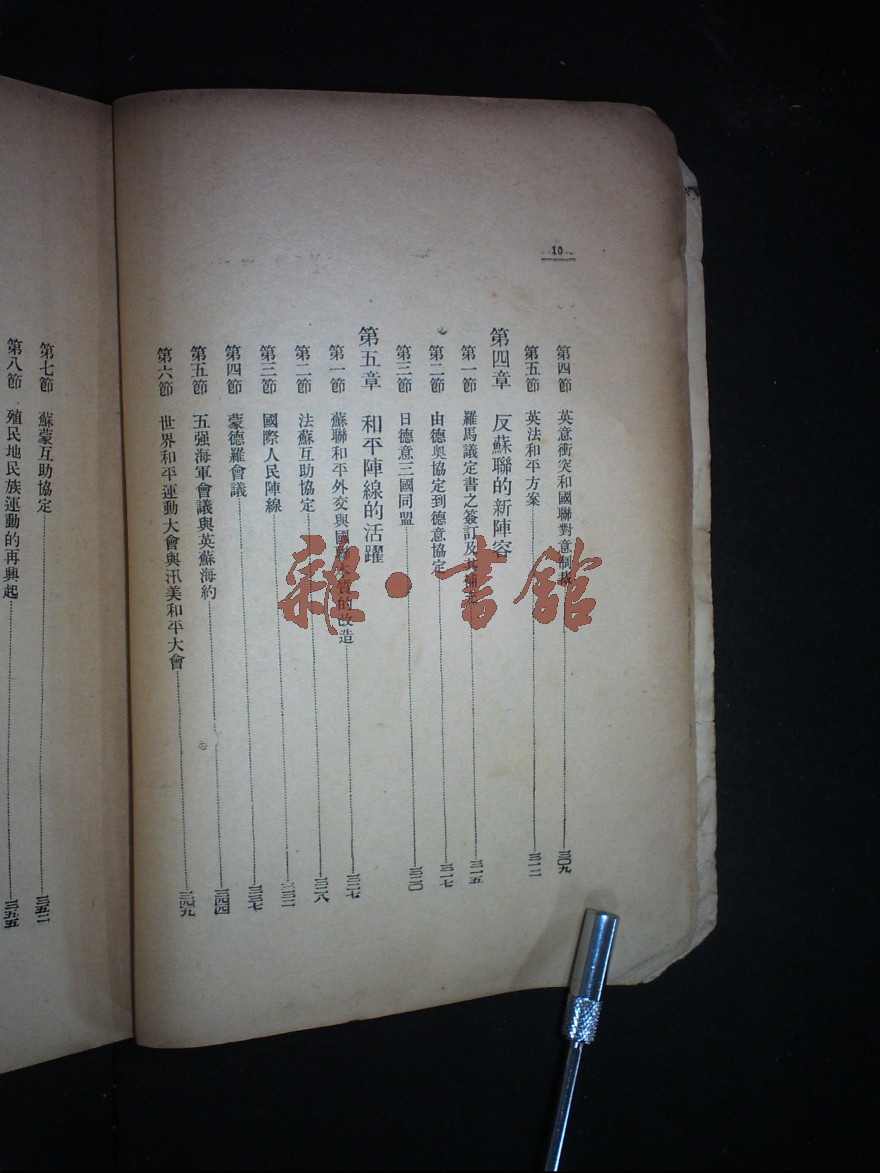 10
第四節 英意衝突和國聯對意制裁 三〇九
第五節 英法和平方案 三一二
第四章 反蘇聯的新陣容
第一節 羅馬議定書之簽訂及其 三一五
第二節 由德奧協定到德意協定 三一七
第三節 日德意三國同盟 三二〇
第五章 和平陣線的活躍
第一節 蘇聯和平外交與國聯本質的改造 三二七
第二節 法蘇互助協定 三二八
第三節 國際人民陣線
第四節 蒙德羅會議 三三七
第五節 五强海軍會議與英蘇海約 三四四
第六節 世界和平運動大會與汎美和平大會 三四九
第七節 蘇蒙互助協定 三五二
第八節 殖民地民族運動的再興起 三五五
雜·書館